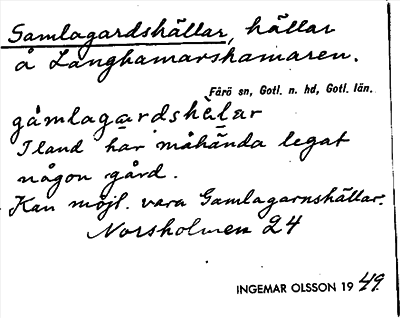 Gamlagardshällar, hällar
å Langhamarshamaren.
Fårö sn, Gotl. n. hd, Gotl. län.
gåmlagardshèlar
I land har måhända legat
någon gård.
Kan möjl. vara Gamlagarnshällar.
Norsholmen 24
INGEMAR OLSSON 19 49.